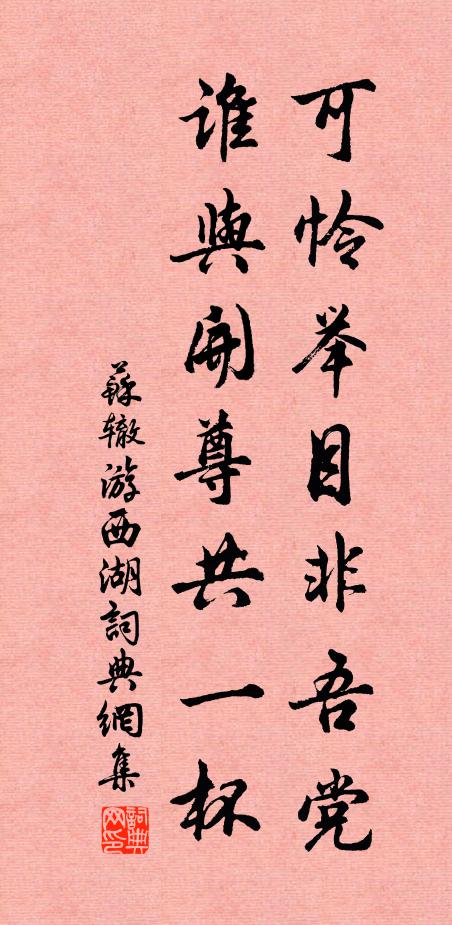 可怜举目非吾党
谁与开尊共一杯
蘇辙游西湖詞典網集
詞典网印